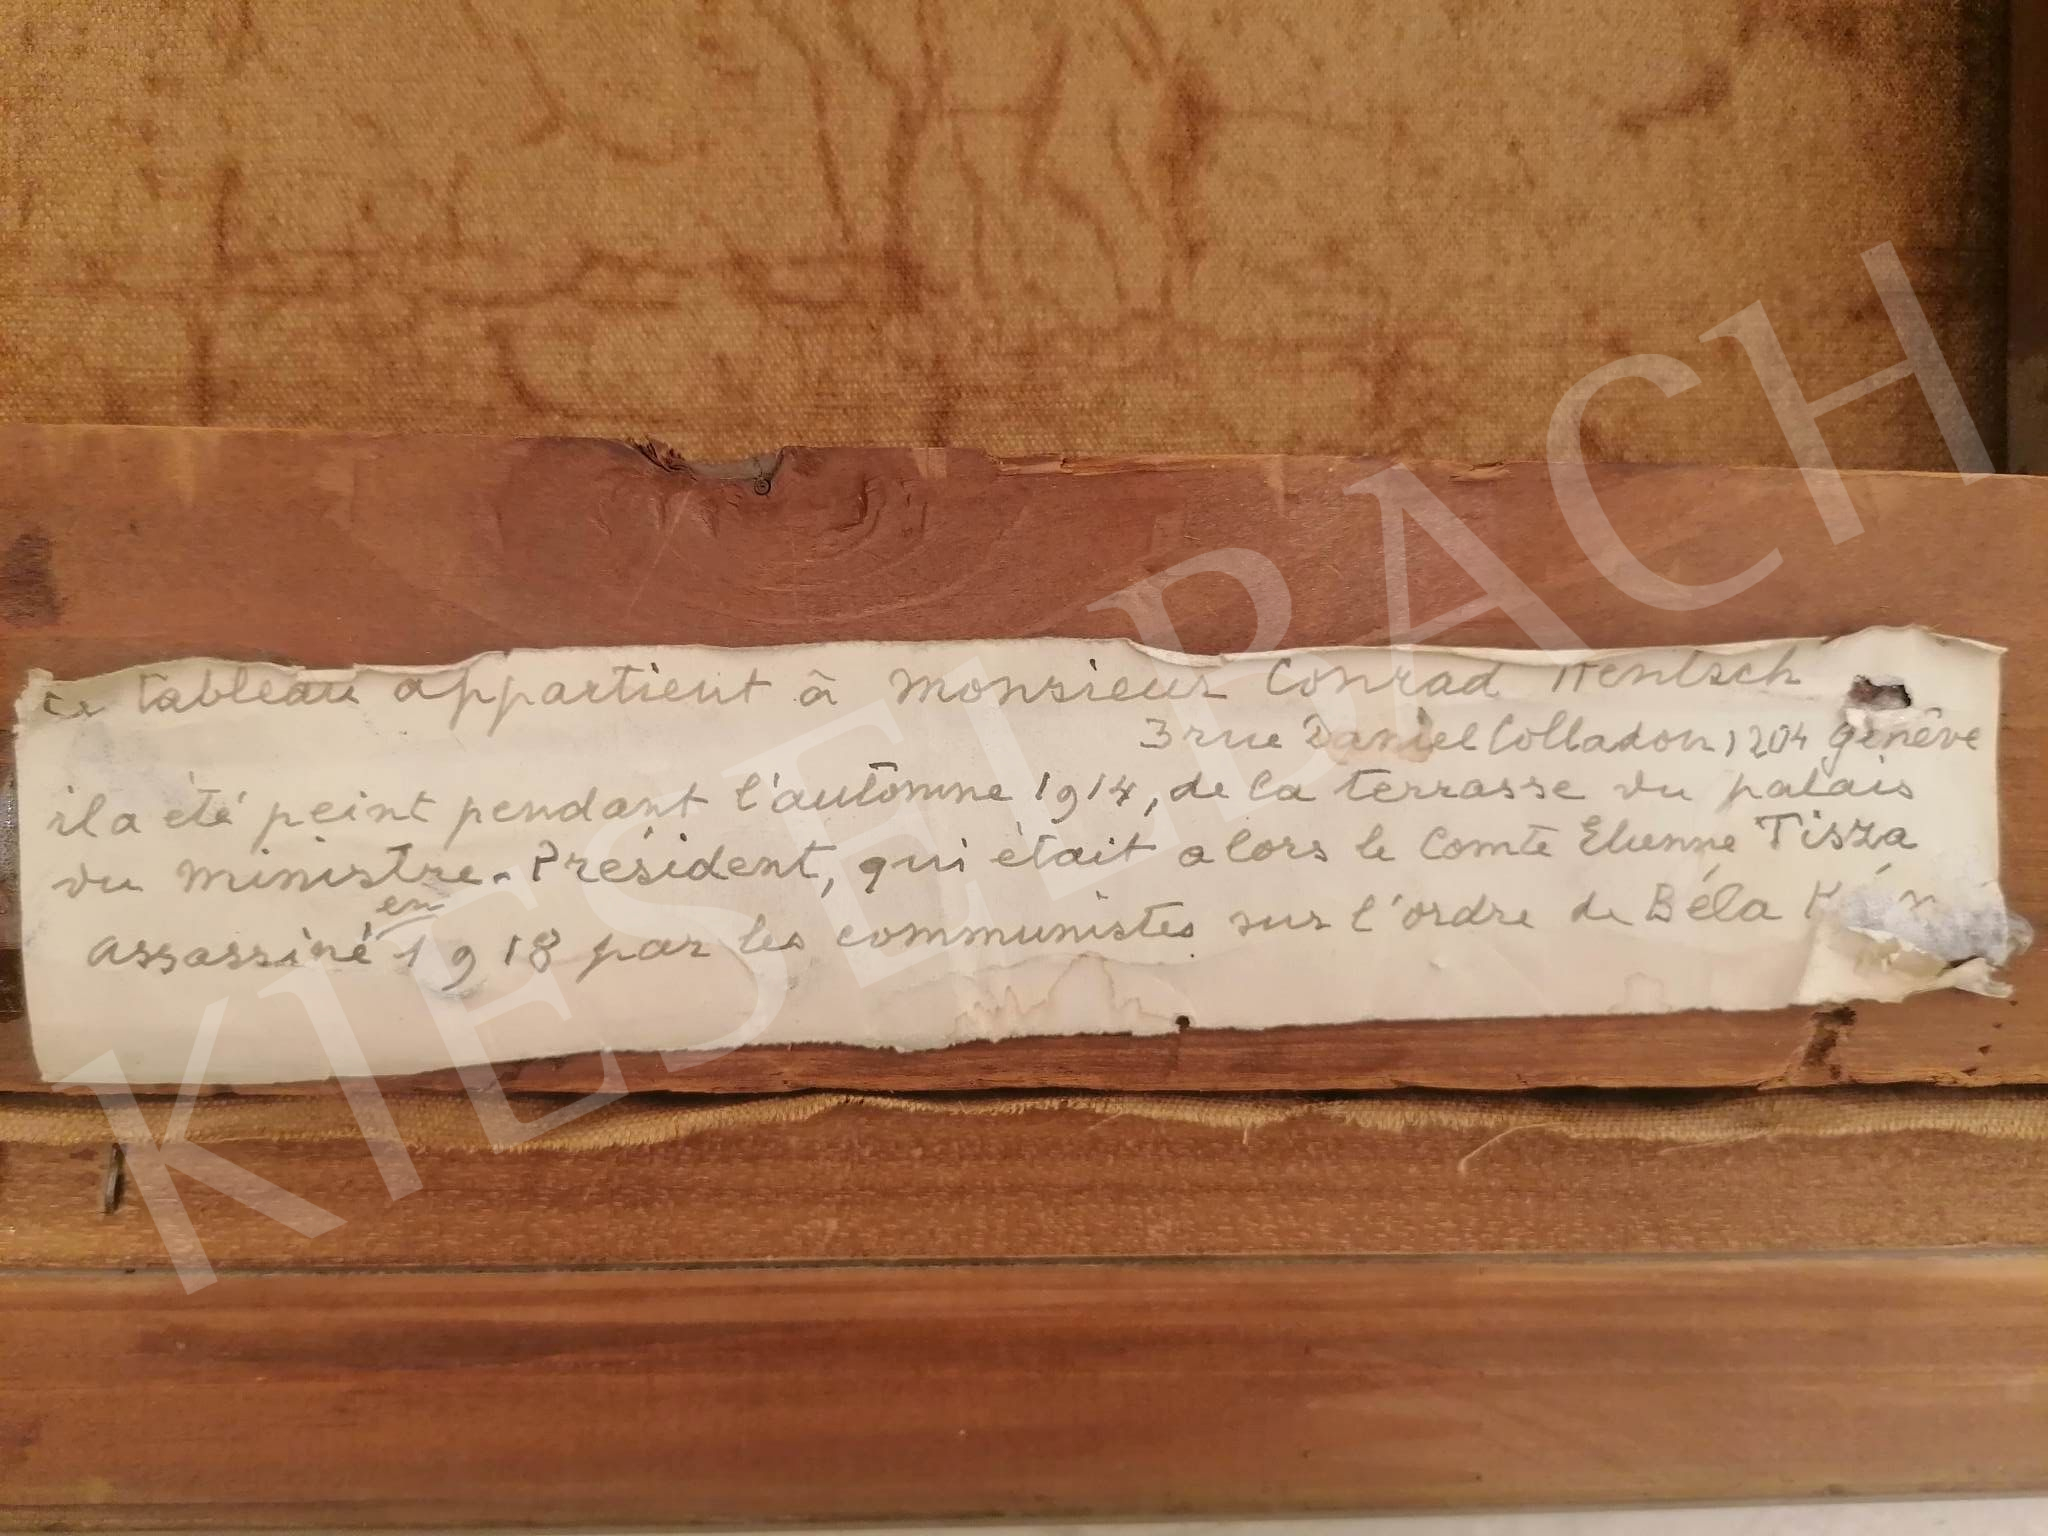 Ce tableau appartient à Monsieur Conrad Hentsch
3 rue Daniel Colladon 1204 genêve
il a été peint pendant l'autômne 1914, de la terrasse du palais
du ministre-Président, qui êtait alors le Comte Etienne Tisza
assassiné en 1918 par les communistes sur l'ordre de Béla
KIESELBACH